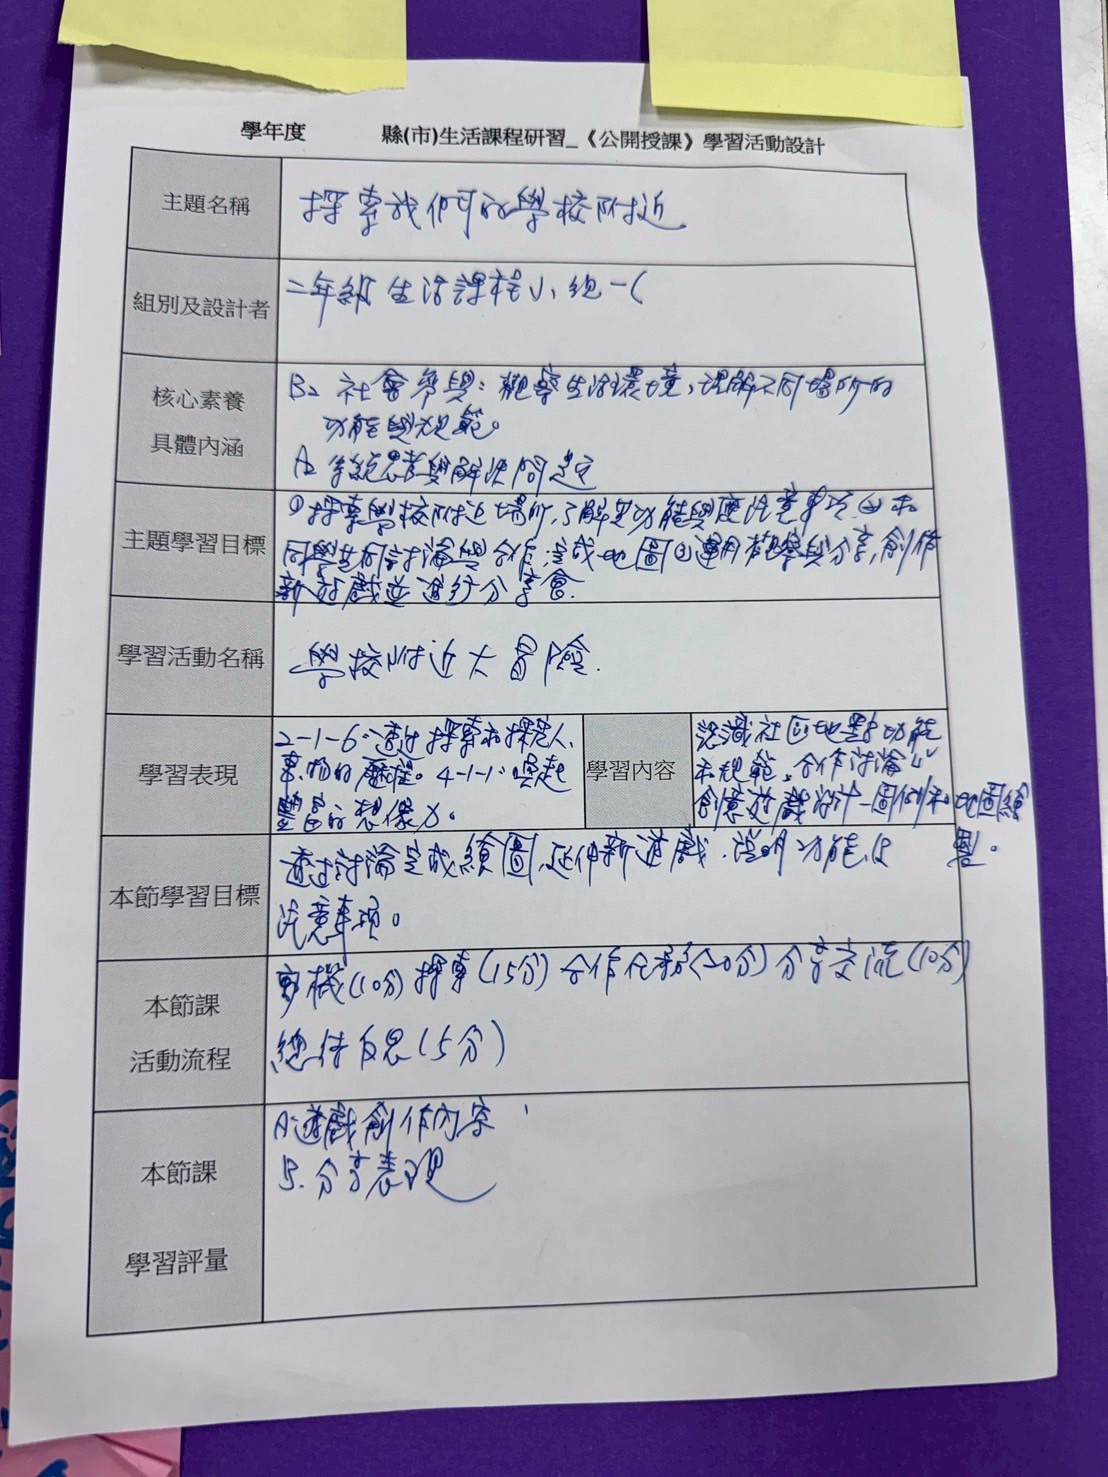 學年度 縣(市)生活課程研習_《公開授課》學習活動設計
主題名稱
探索我們的學校附近
組別及設計者
二年級生活課程小組
核心素養
具體內涵
社會參與：觀察生活環境，理解不同場所的
功能與規範。
A2 系統思考與解決問題
主題學習目標
①探索學校附近場所，了解其功能與應注意事項②和
同學共同討論與合作，完成地圖③運用觀察與分享，創作
新遊戲並進行分享會.
學習活動名稱
學校附近大冒險.
學習表現
2-1-6:透過探索和探究人、
事、物的歷程。4-1-1:喚起
豐富的想像力。
學習內容
認識社區地點功能
和規範、合作討論
創意遊戲設計-圖例和地圖繪
製。
本節學習目標
透過討論完成繪圖,延伸新遊戲.說明功能及
注意事項。
本節課
活動流程
動機(10分)探索(15分)合作任務(20分)分享交流(10分)
總結反思(5分)
本節課
學習評量
A.遊戲創作內容
B.分享表現